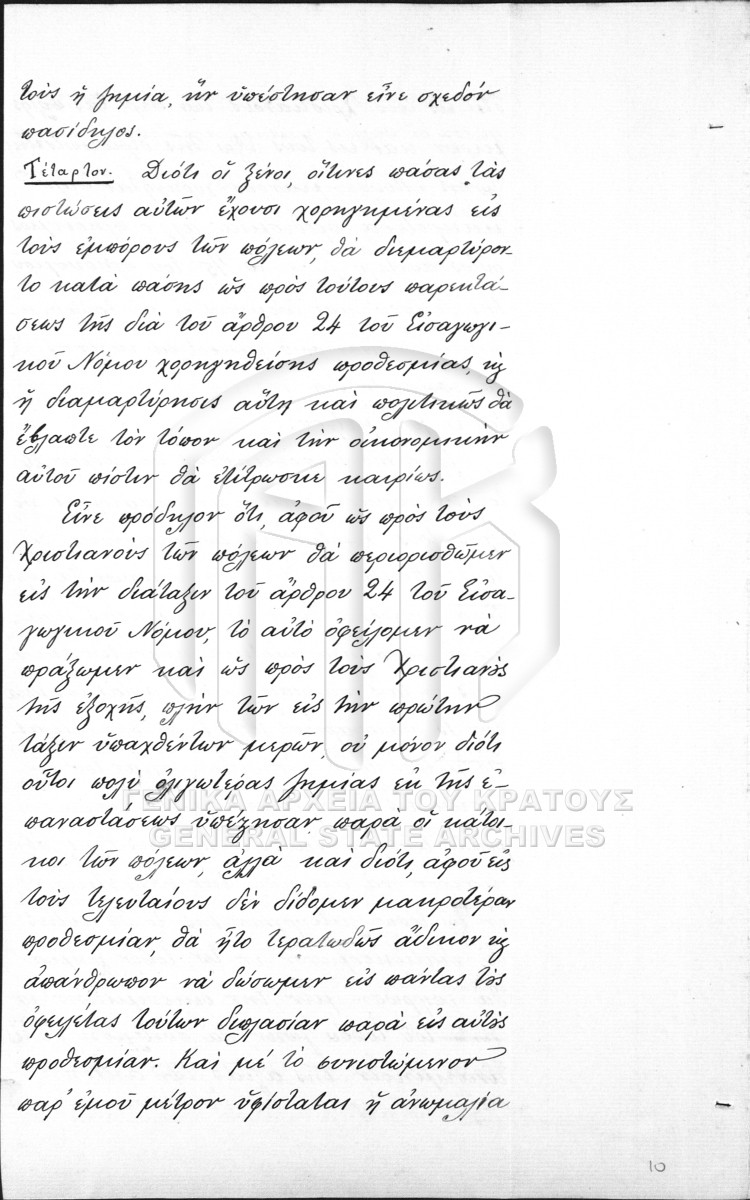 τοὺς ἡ ζημία, ἣν ὑπέστησαν εἶνε σχεδὸν
πασίδηλος.
Τέταρτον. Διότι οἱ ξένοι, οἵτινες πάσας τὰς
πιστώσεις αὐτῶν ἔχουσι χορηγημένας εἰς
τοὺς ἐμπόρους τῶν πόλεων, θὰ διεμαρτύρον-
το κατὰ πάσης ὡς πρὸς τούτους παρεκτά-
σεως τῆς διὰ τοῦ ἄρθρου 24 τοῦ Εἰσαγωγι-
κοῦ Νόμου χορηγηθείσης προθεσμίας, κ̀
ἡ διαμαρτύρησις αὕτη καὶ πολιτικῶς θὰ
ἔβλαπτε τὸν τόπον καὶ τὴν οἰκονομικὴν
αὐτοῦ πίστιν θὰ ἐτίτρωσκε καιρίως.
Εἶνε πρόδηλον ὅτι, ἀφοῦ ὡς πρὸς τοὺς
Χριστιανοὺς τῶν πόλεων θὰ περιορισθῶμεν
εἰς τὴν διάταξιν τοῦ ἄρθρου 24 τοῦ Εἰσα-
γωγικοῦ Νόμου, τὸ αὐτὸ ὀφείλομεν νὰ
πράξωμεν καὶ ὡς πρὸς τοὺς Χριστιανοὺς
τῆς ἐξοχῆς, πλὴν τῶν εἰς τὴν πρώτην
τάξιν ὑπαχθέντων μερῶν, οὐ μόνον διότι
οὗτοι πολὺ ὀλιγωτέρας ζημίας ἐκ τῆς ἐ-
παναστάσεως ὑπέστησαν παρὰ οἱ κάτοι-
κοι τῶν πόλεων, ἀλλὰ καὶ διότι, ἀφοῦ εἰς
τοὺς τελευταίους δὲν δίδομεν μακροτέραν
προθεσμίαν, θὰ ἦτο τερατωδῶς ἄδικον κ̀
ἀπάνθρωπον νὰ δώσωμεν εἰς πάντας τοὺς
ὀφειλέτας τούτων διπλασίαν παρὰ εἰς αὐτοὺς
προθεσμίαν. Καὶ μὲ τὸ συνιστώμενον
παρ' ἐμοῦ μέτρον ὑφίσταται ἡ ἀνωμαλία
10
ΓΕΝΙΚΑ ΑΡΧΕΙΑ ΤΟΥ ΚΡΑΤΟΥΣ
GENERAL STATE ARCHIVES